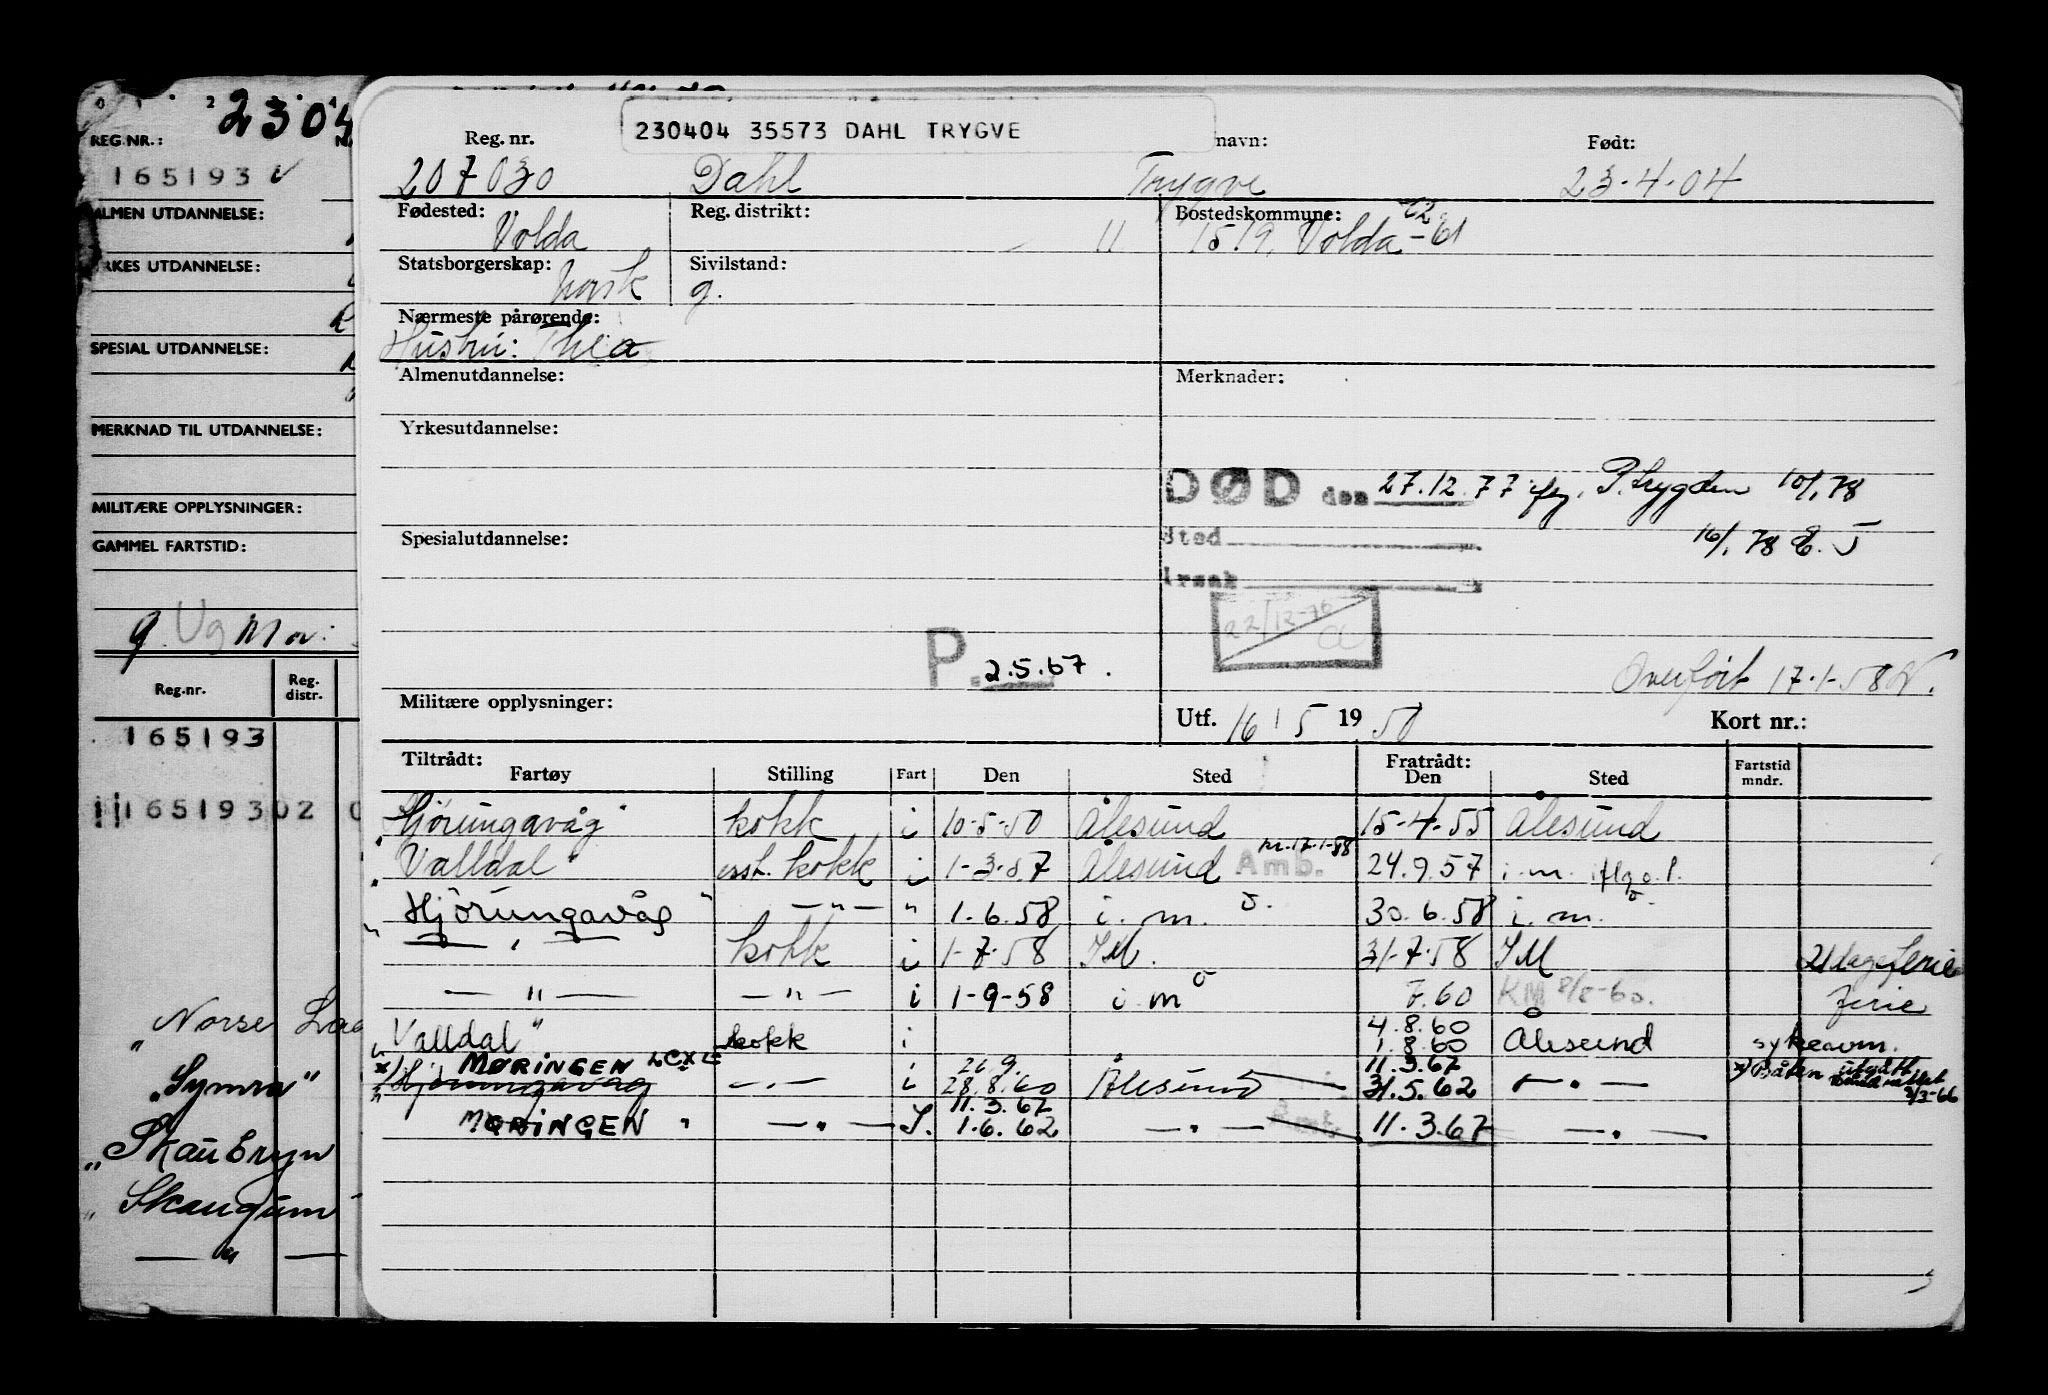 2304
REG.NR.:
165193 v
ALMEN UTDANNELSE:
YRKES UTDANNELSE:
SPESIAL UTDANNELSE:
MERKNAD TIL UTDANNELSE:
MILITÆRE OPPLYSNINGER:
GAMMEL FARTSTID:
g. Ug
Reg.nr. Reg. distr.
165193
165193 02
"Norse
"Symra"
"Skaubryn
"Skaugum
— " —
230404 35573 DAHL TRYGVE
Reg. nr. navn: Født:
207030 Dahl Trygve 23-4-04
Fødested: Volda Reg. distrikt: 11 Bostedskommune: 1519 Volda -61
62
Statsborgerskap: norsk Sivilstand: g.
Nærmeste pårørende:
Hustru: Thea
Almenutdannelse: Merknader:
Yrkesutdannelse:
DØD den 27.12.77 P.trygden 10/1 78
Spesialutdannelse: Sted 16/1 78
Årsak
22/12-76
P. 2.5.67.
Overført 17-1-58
Militære opplysninger: Utf. 16/5 1950 Kort nr.:
Tiltrådt: Fratrådt:
Fartøy Stilling Fart Den Sted Den Sted Fartstid mndr.
"Hjørungavåg" kokk i 10-5-50 Ålesund 15-4-55 Ålesund
"Valldal" asst. kokk i 1-3-57 Ålesund Amb. 17-1-58 24.9.57 i.m.
"Hjørungavåg" — " — " 1.6.58 i.m. 30.6.58 i.m.
— " — kokk i 1-7-58 IM. 31-7-58 IM 21 dager ferie
— " — — " — i 1-9-58 i m 7.60 KM 8/8-60. Ferie
4.8.60
"Valldal" kokk i 1.8.60 Ålesund sykeavm.
MØRINGEN LCXL 26 9. 11.3.67
x) "Hjørungavåg — " — i 28.8.60 Ålesund 31.5.62 — " — x) Båten utgått
2/3-66
11.3.67
MØRINGEN " — " — I. 1.6.62 — " — 11.3.67 — " —